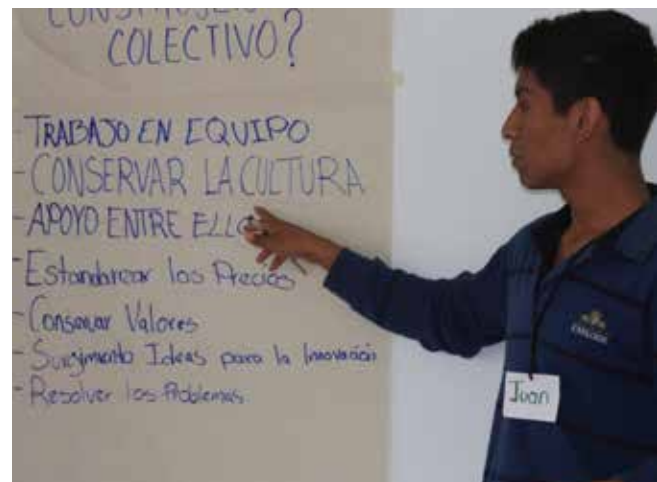 COLECTIVO?
- TRABAJO EN EQUIPO
- CONSERVAR LA CULTURA
- APOYO ENTRE
- Estandarear los Precios
- Conservar Valores
- Surgimiento Ideas para la Innovación
- Resolver los Problemas.
Juan